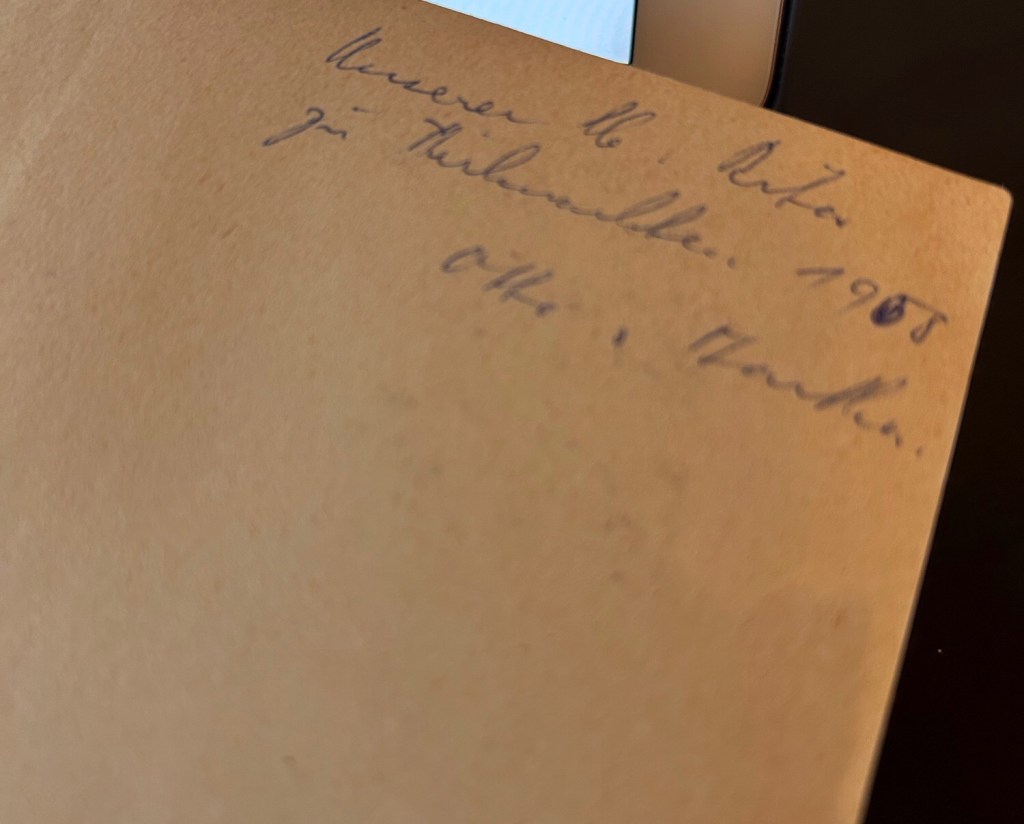 Unserer lb. Rita
zu Weihnachten 1968
Otto